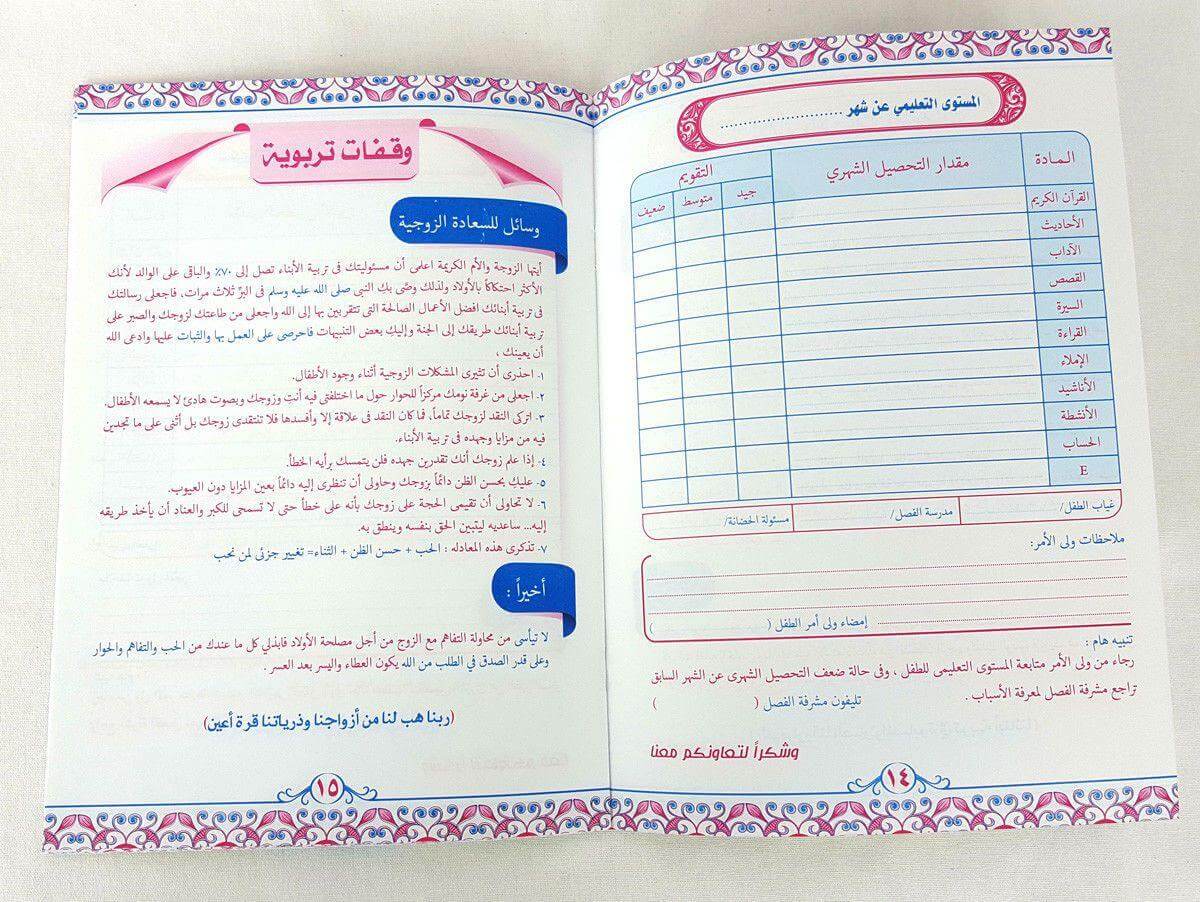 المستوى التعليمي عن شهر ..............................
المادة
مقدار التحصيل الشهري
التقويم
جيد
متوسط
ضعيف
القرآن الكريم
الأحاديث
الآداب
القصص
السيرة
القراءة
الإملاء
الأناشيد
الأنشطة
الحساب
E
غياب الطفل/
مدرسة الفصل/
مسئولة الحضانة/
ملاحظات ولى الأمر:
إمضاء ولى أمر الطفل ( )
تنبيه هام :
رجاء من ولى الأمر متابعة المستوى التعليمى للطفل ، وفى حالة ضعف التحصيل الشهرى عن الشهر السابق
تراجع مشرفة الفصل لمعرفة الأسباب . تليفون مشرفة الفصل ( )
وشكراً لتعاونكم معنا
١٤
وقفات تربوية
وسائل للسعادة الزوجية
أيتها الزوجة والأم الكريمة اعلمى أن مسئوليتك فى تربية الأبناء تصل إلى ٧٠٪ والباقى على الوالد لأنك
الأكثر احتكاكاً بالأولاد ولذلك وصَّى بكِ النبى صلى الله عليه وسلم فى البرِّ ثلاث مرات، فاجعلى رسالتك
فى تربية أبنائك افضل الأعمال الصالحة التى تتقربين بها إلى الله واجعلى من طاعتك لزوجك والصبر على
تربية أبنائك طريقك إلى الجنة وإليكِ بعض التنبيهات فاحرصى على العمل بها والثبات عليها وادعى الله
أن يعينك ،
١- احذرى أن تثيرى المشكلات الزوجية أثناء وجود الأطفال.
٢- اجعلى من غرفة نومك مركزاً للحوار حول ما اختلفتى فيه أنتِ وزوجك وبصوت هادئ لا يسمعه الأطفال.
٣- اتركى النقد لزوجك تماماً، فما كان النقد فى علاقة إلا وأفسدها فلا تنتقدى زوجك بل أثنى على ما تجدين
فيه من مزايا وجهده فى تربية الأبناء.
٤- إذا علم زوجك أنك تقدرين جهده فلن يتمسك برأيه الخطأ.
٥- عليكِ بحسن الظن دائماً بزوجك وحاولى أن تنظرى إليه دائماً بعين المزايا دون العيوب.
٦- لا تحاولى أن تقيمى الحجة على زوجك بأنه على خطأ حتى لا تسمحى للكبر والعناد أن يأخذ طريقه
إليه... ساعديه ليتبين الحق بنفسه وينطق به.
٧- تذكرى هذه المعادله : الحب + حسن الظن + الثناء= تغيير جزئى لمن نحب
أخيراً :
لا تيأسى من محاولة التفاهم مع الزوج من أجل مصلحة الأولاد فابذلي كل ما عندك من الحب والتفاهم والحوار
وعلى قدر الصدق في الطلب من الله يكون العطاء واليسر بعد العسر .
(ربنا هب لنا من أزواجنا وذرياتنا قرة أعين)
١٥